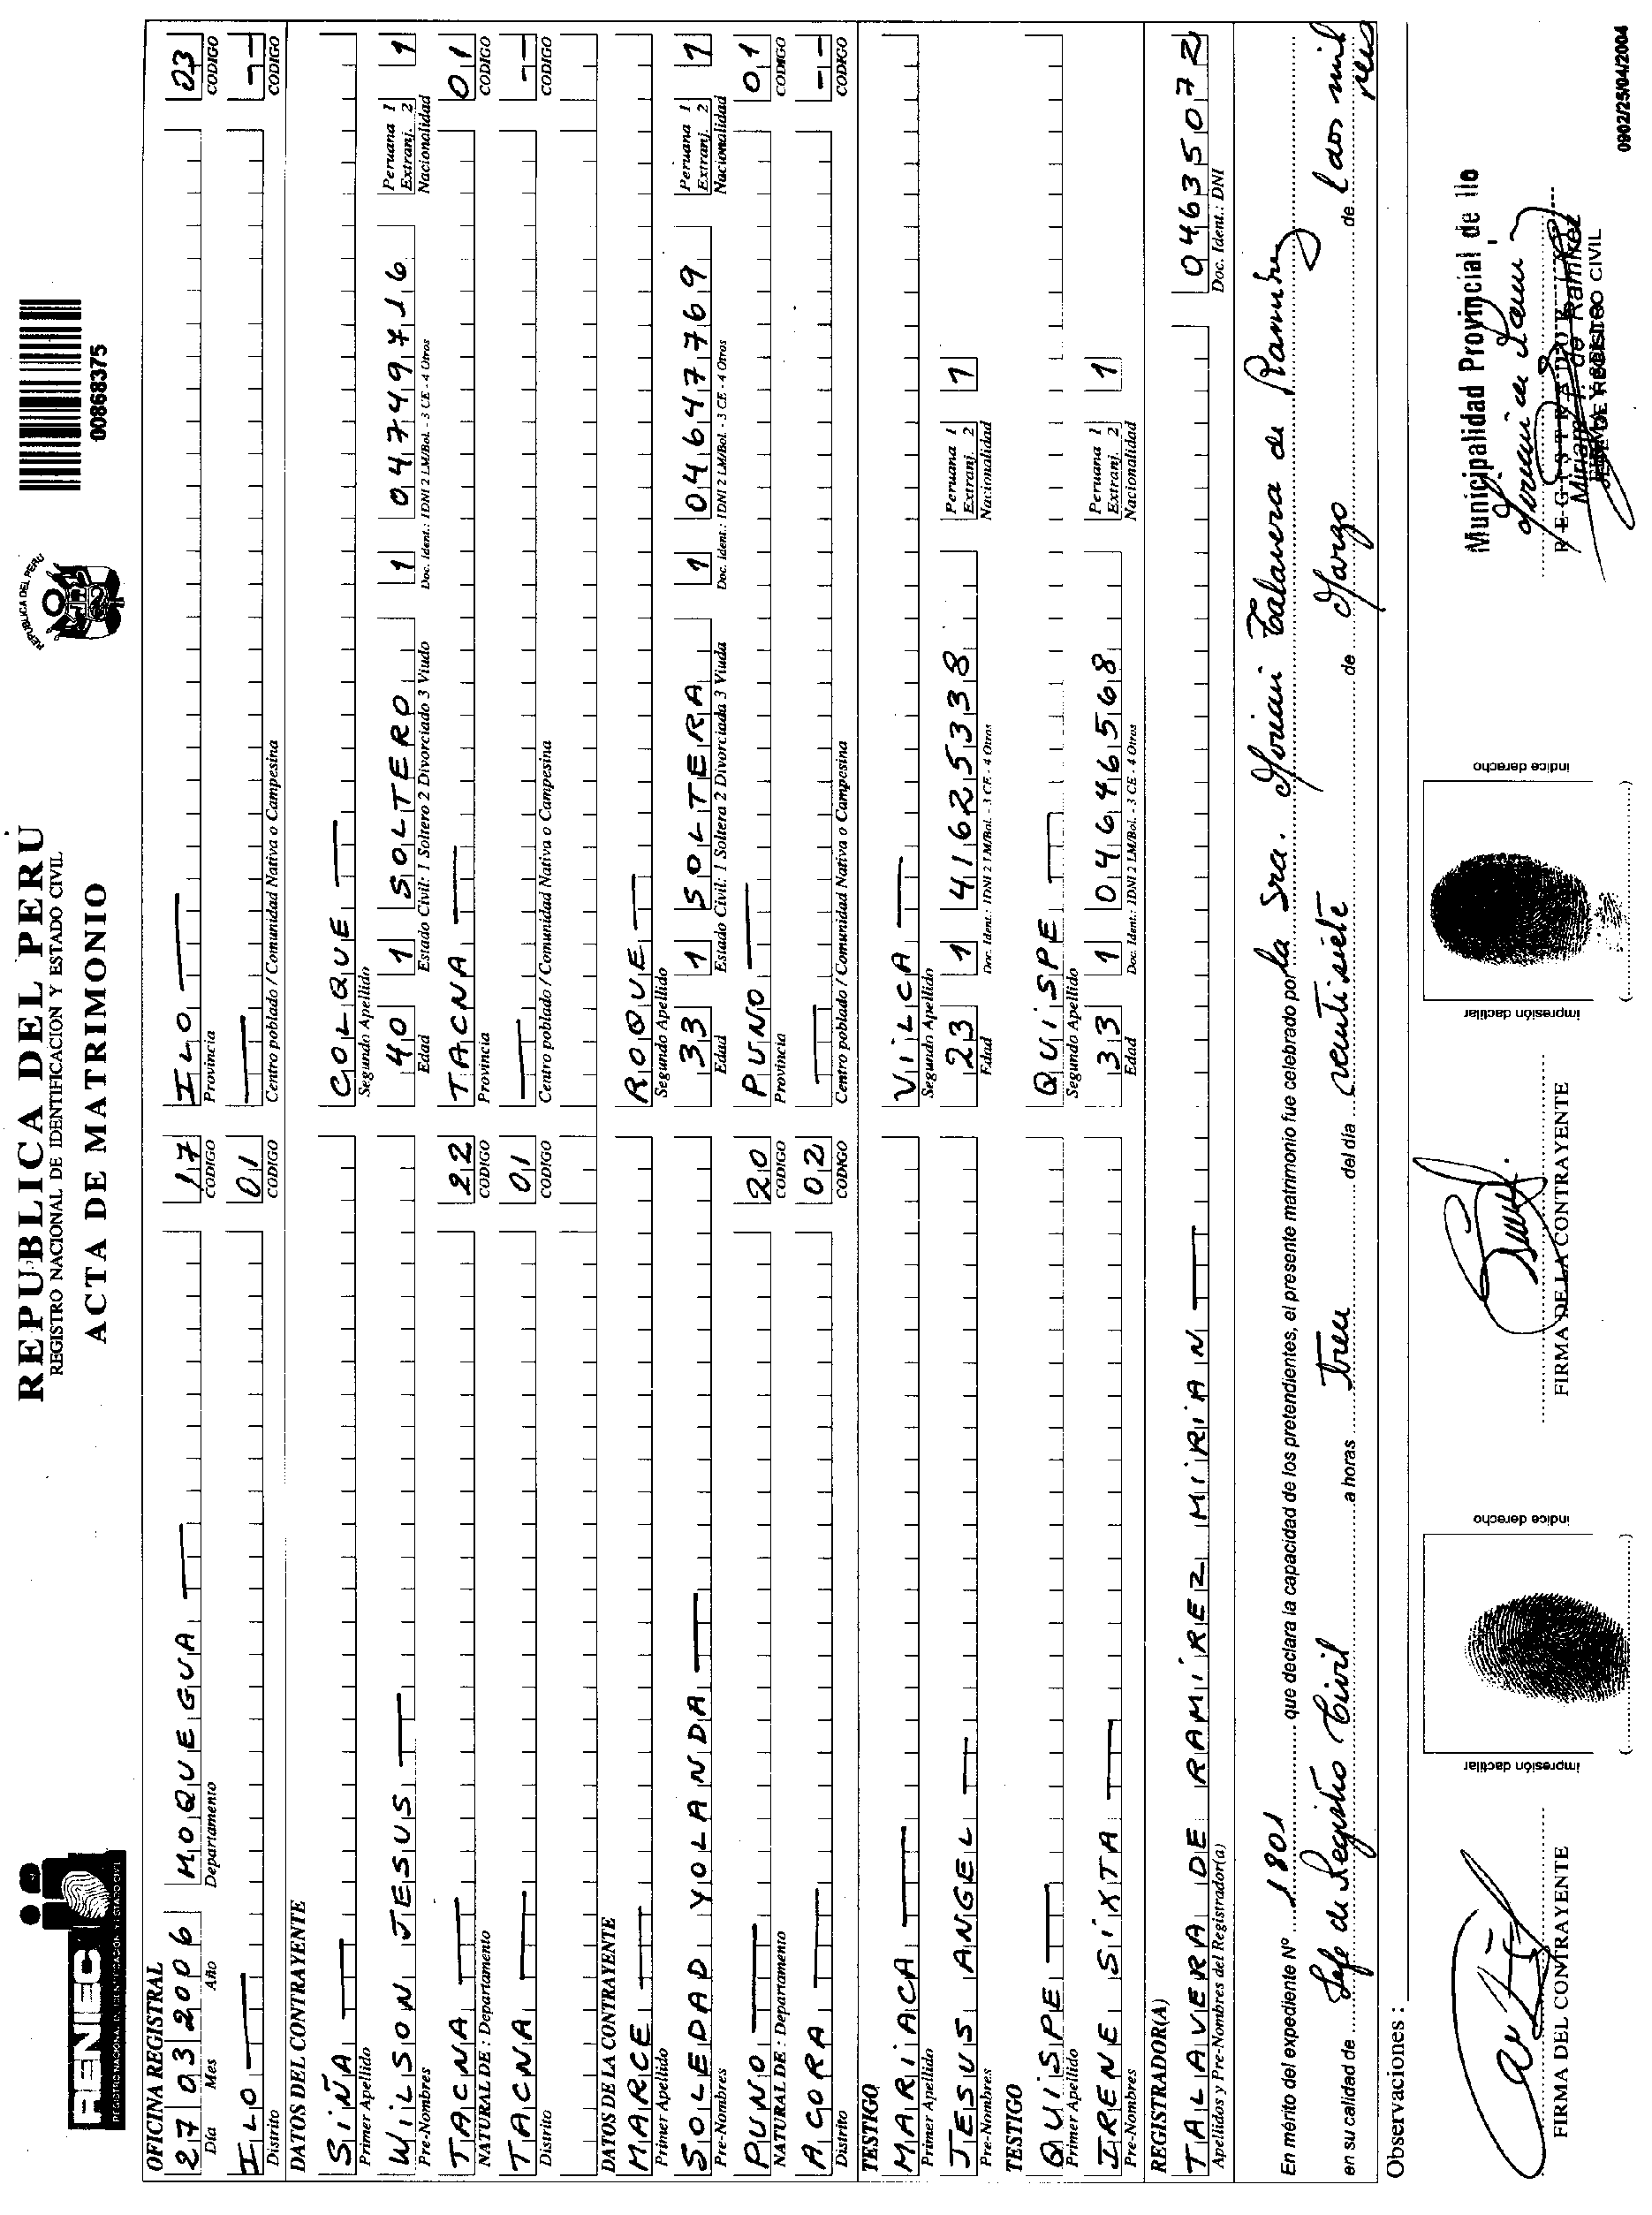 RENIEC
REGISTRO NACIONAL DE IDENTIFICACION Y ESTADO CIVIL
REPUBLICA DEL PERU
REGISTRO NACIONAL DE IDENTIFICACION Y ESTADO CIVIL
ACTA DE MATRIMONIO
REPUBLICA DEL PERU
00868375
OFICINA REGISTRAL
27 03 2006 MOQUEGUA 17 ILO 03
Dia Mes Año Departamento CODIGO Provincia CODIGO
ILO 01 --
Distrito CODIGO Centro poblado / Comunidad Nativa o Campesina CODIGO
DATOS DEL CONTRAYENTE
SIÑA COLQUE
Primer Apellido Segundo Apellido
WILSON JESUS 40 1 SOLTERO 1 04749716 Peruana 1 Extranj. 2 1
Pre-Nombres Edad Estado Civil: 1 Soltero 2 Divorciado 3 Viudo Doc. Ident.: 1DNI 2 LM/Bol. - 3 CE - 4 Otros Nacionalidad
TACNA 22 TACNA 01
NATURAL DE : Departamento CODIGO Provincia CODIGO
TACNA 01 --
Distrito CODIGO Centro poblado / Comunidad Nativa o Campesina CODIGO
DATOS DE LA CONTRAYENTE
MARCE ROQUE
Primer Apellido Segundo Apellido
SOLEDAD YOLANDA 33 1 SOLTERA 1 04647769 Peruana 1 Extranj. 2 1
Pre-Nombres Edad Estado Civil: 1 Soltera 2 Divorciada 3 Viuda Doc. Ident.: 1DNI 2 LM/Bol. - 3 CE - 4 Otros Nacionalidad
PUNO 20 PUNO 01
NATURAL DE : Departamento CODIGO Provincia CODIGO
ACORA 02 --
Distrito CODIGO Centro poblado / Comunidad Nativa o Campesina CODIGO
TESTIGO
MARIACA VILCA
Primer Apellido Segundo Apellido
JESUS ANGEL 23 1 41625338 Peruana 1 Extranj. 2 1
Pre-Nombres Edad Doc. Ident.: 1DNI 2 LM/Bol. - 3 CE - 4 Otros Nacionalidad
TESTIGO
QUISPE QUISPE
Primer Apellido Segundo Apellido
IRENE SIXTA 33 1 04646568 Peruana 1 Extranj. 2 1
Pre-Nombres Edad Doc. Ident.: 1DNI 2 LM/Bol. - 3 CE - 4 Otros Nacionalidad
REGISTRADOR(A)
TALAVERA DE RAMIREZ MIRIAN 04635072
Apellidos y Pre-Nombres del Registrador(a) Doc. Ident.: DNI
En mérito del expediente Nº 1801 que declara la capacidad de los pretendientes, el presente matrimonio fue celebrado por la Sra. Mirian Talavera de Ramirez
en su calidad de Jefe de Registro Civil a horas trece del día veintisiete de Marzo de dos mil seis
Observaciones :
impresión dactilar índice derecho
impresión dactilar índice derecho
Municipalidad Provincial de Ilo
REGISTRADOR
JEFE DE REGISTRO CIVIL
FIRMA DEL CONTRAYENTE
FIRMA DE LA CONTRAYENTE
0902/25/04/2004